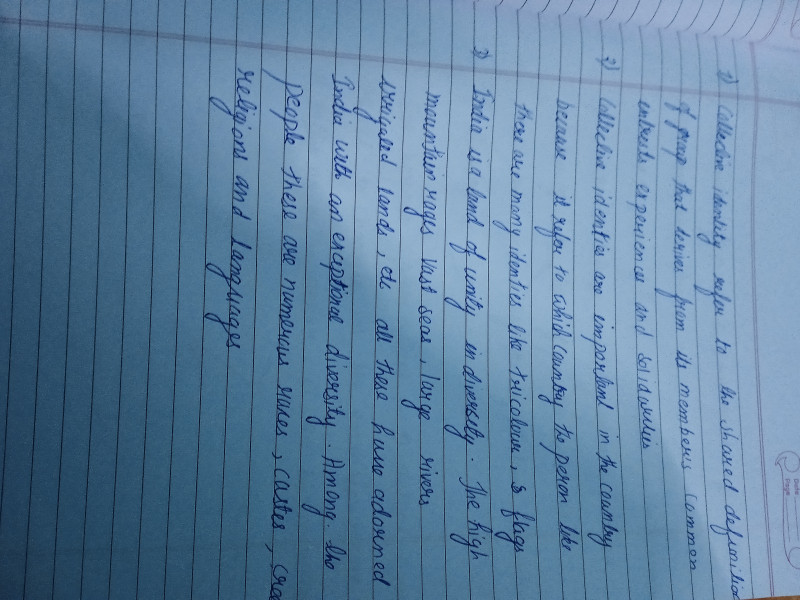 Date
Page
1) Collective identity refer to the shared definition
of group that derives from its members common
intrests experiences and solidarities
2) Collective identies are important in the country
because it refer to which country the person like
there are many identies like tricolour, flags
3) India is a land of unity in diversity. The high
mountain rages vast seas, large rivers
irrigated lands, etc all these have adorned
India with an exceptional diversity. Among the
people there are numerous races, castes,
religions and Languages